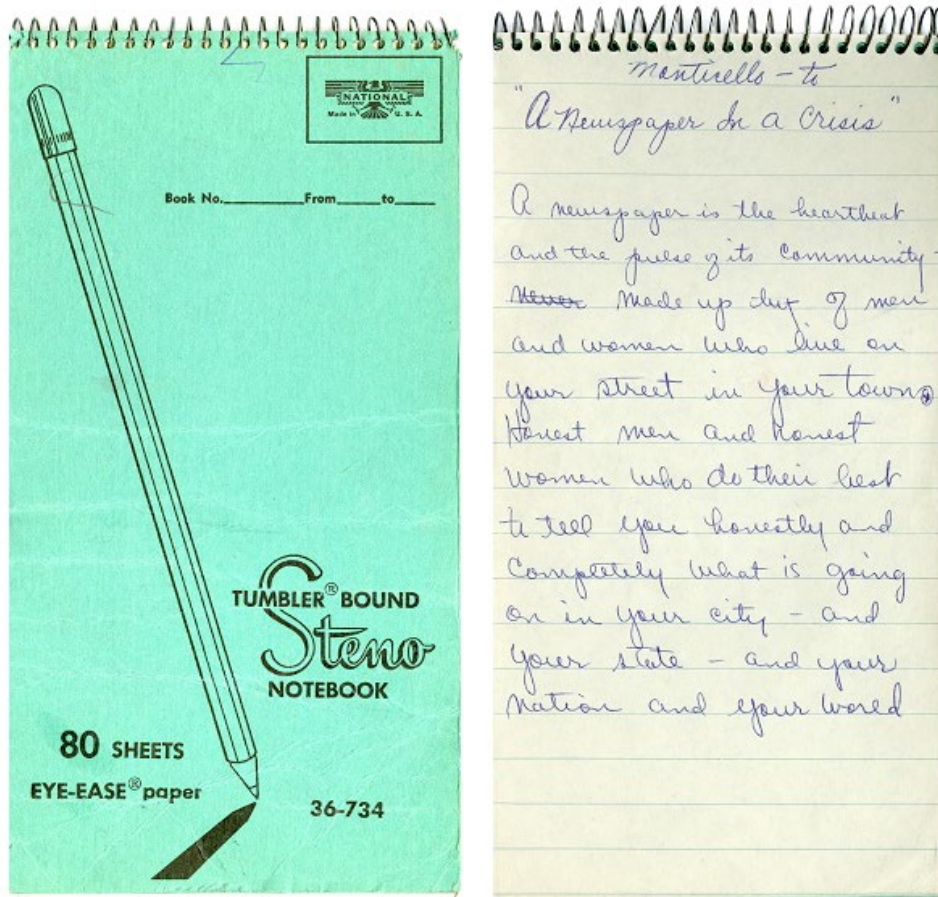 NATIONAL
Made in U. S. A.
Book No. From to
TUMBLER® BOUND
Steno
NOTEBOOK
80 SHEETS
EYE-EASE® paper
36-734
Monticello - to
"A Newspaper In a Crisis"
A newspaper is the heartbeat
and the pulse of its community -
Never Made up of men
and women who live on
your street in your town.
Honest men and honest
women who do their best
to tell you honestly and
Completely what is going
on in your city - and
your state - and your
nation and your world